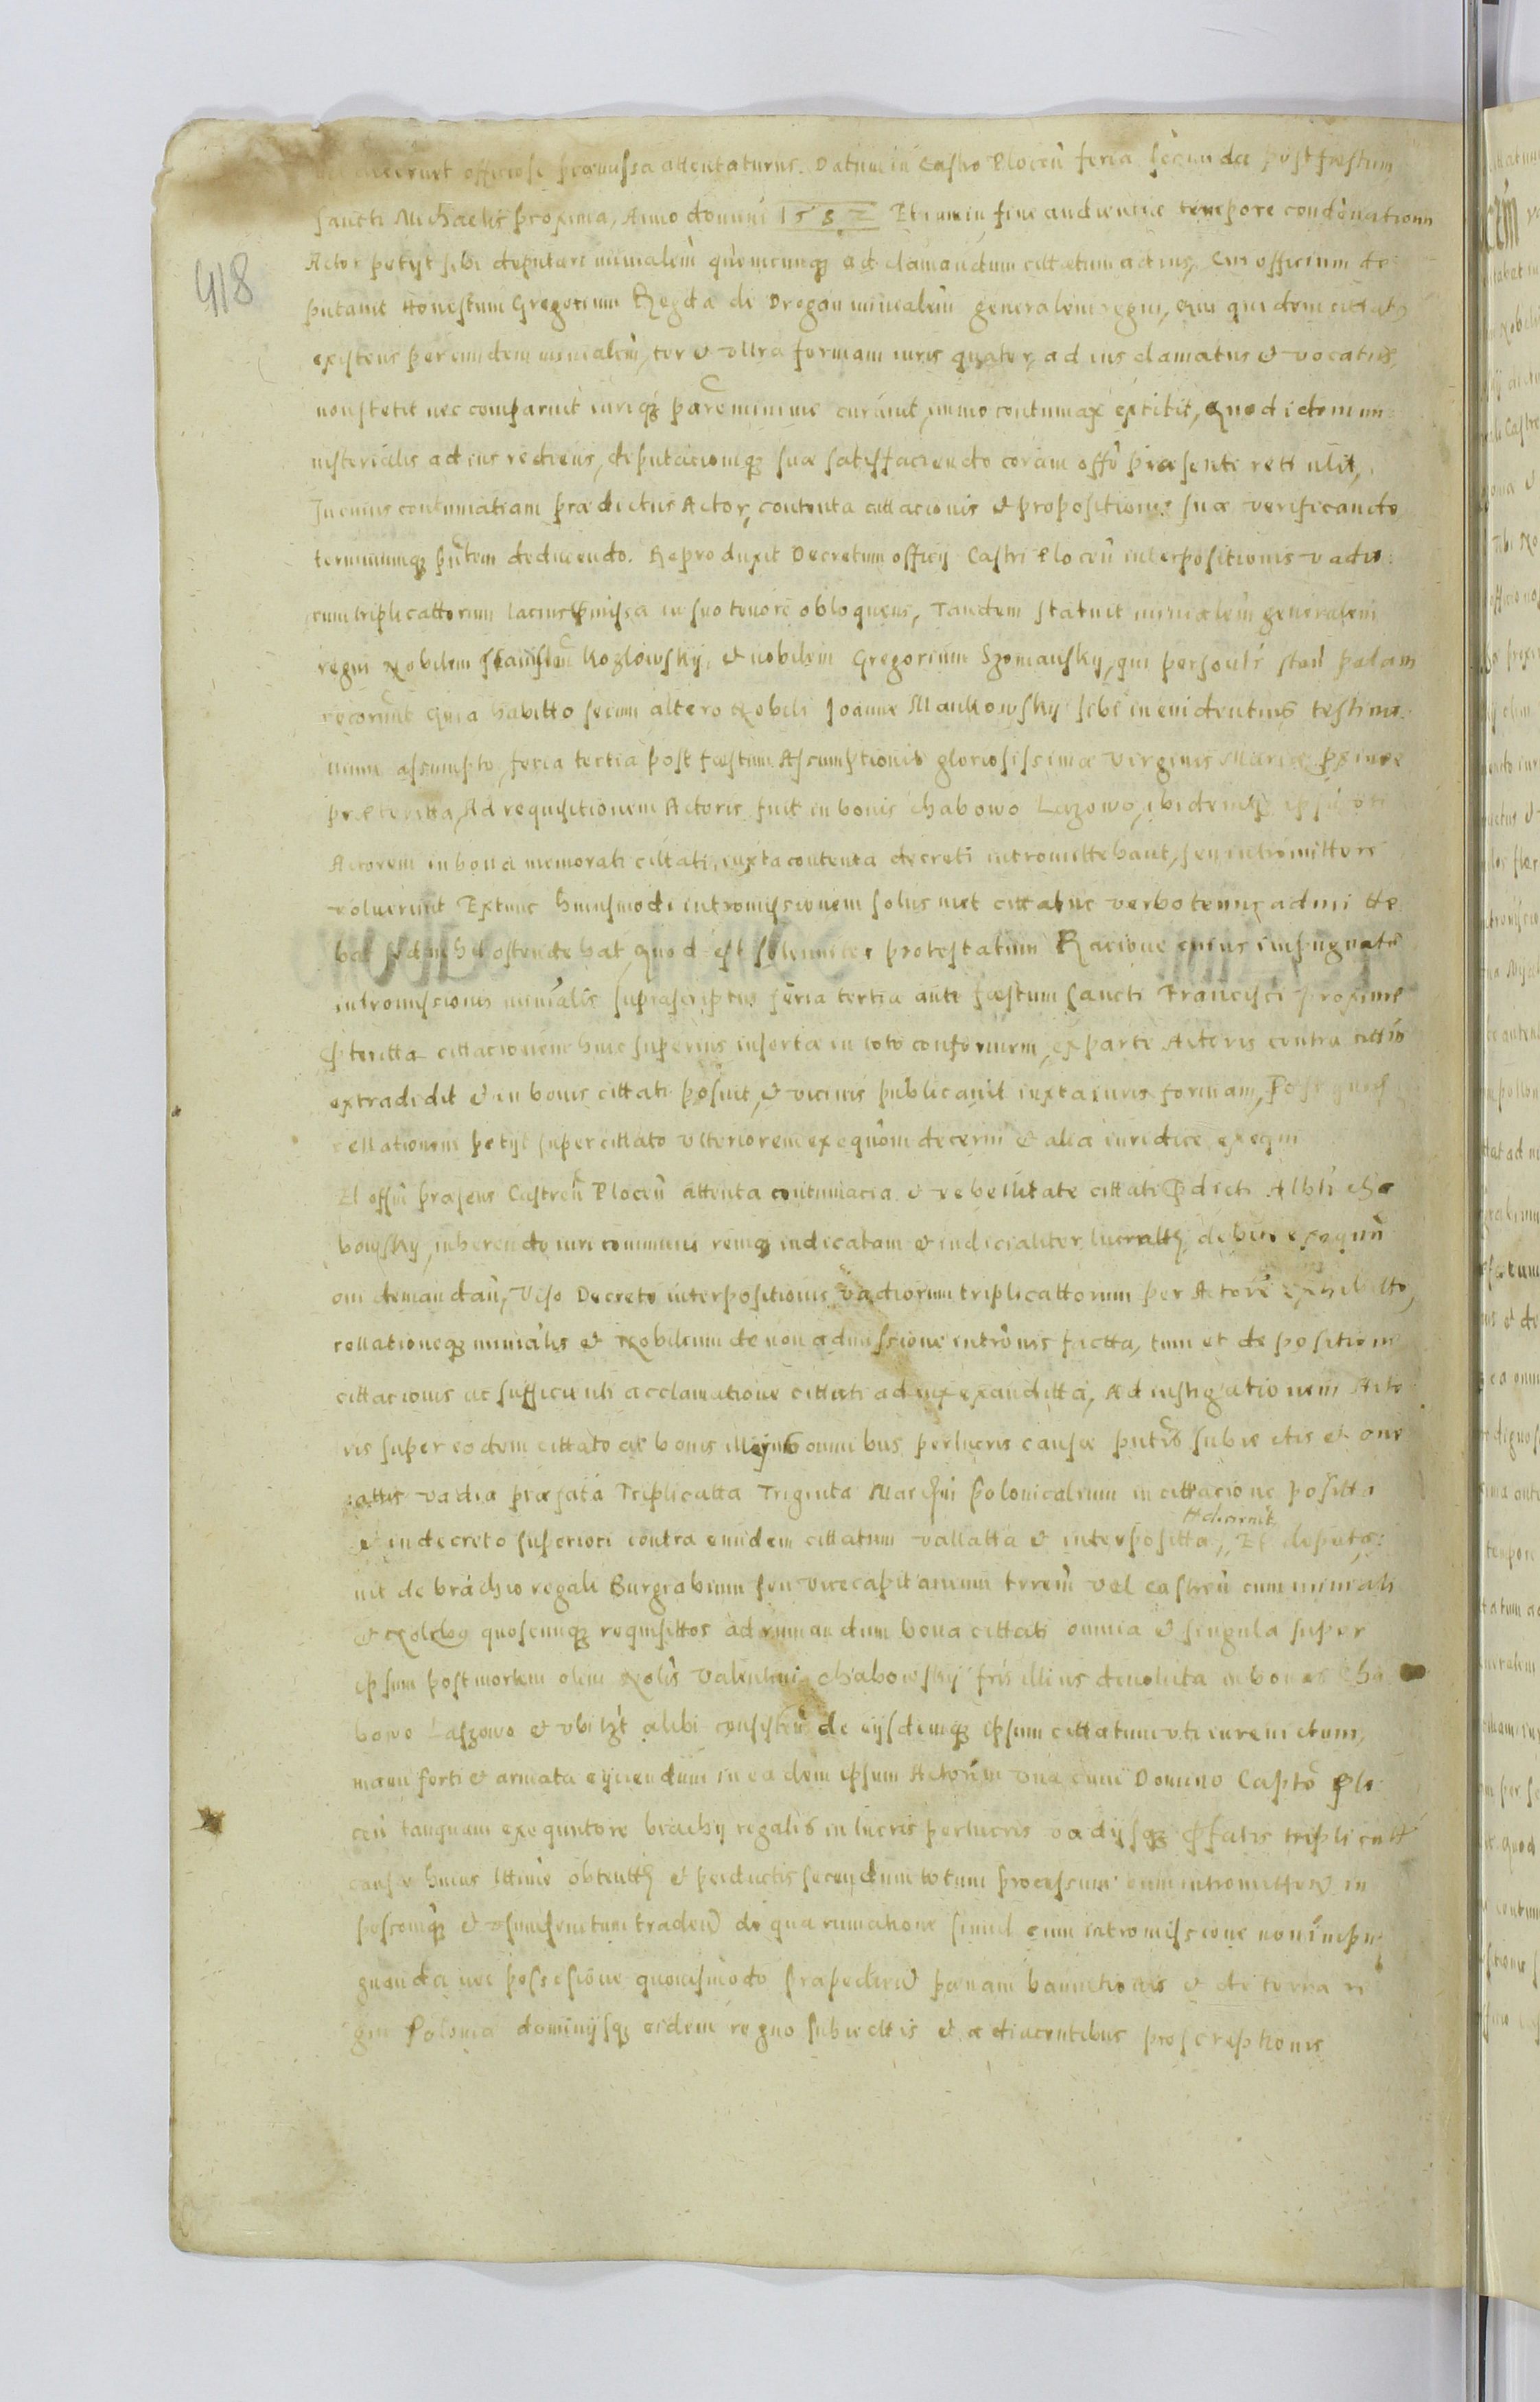 officiose præmissa attentaturus. Datum in Castro Plocen feria secunda post festum
Sancti Michaelis proxima, Anno domini 1582 Et iam in fine audientiæ tempore condonationis
418
Actor petyt sibi deputari minialem quemcunq ad clamandum cittatum ad ius, Cui officium de
putavit Honestum Gregorium de Drogan minialem generalem regni, qui quidem cittatus
existens per eundem minialem, ter et ultra formam iuris quater, ad ius clamatus et vocatus,
non stetit nec comparuit iuriq parere minime curavit, immo contumax extitit, Quod idem mi
nisterialis ad ius rediens, deputacioniq suæ satisfaciendo coram offo præsenti retulit,
In cuius contumatiam prædictus Actor, contenta cittacionis et propositionis suæ verificando
terminumq pntem deducendo. Reproduxit Decretum officij Castri Plocen interpositionis vadio
rum triplicattorum lacius pmissa in suo tenore obloquens, Tandem statuit minialem generalem
regni Nobilem Kozlowsky, et nobilem Gregorium Szomansky, qui personlr palam
recoguit Quia habitto secum altero Nobili Joanne Mankowsky sibi in evidentius testimo
nium assumpto, feria tertia post festum Assumptionis gloriosissimæ Virginis Mariæ
præteritta, Ad requisitionem Actoris fuit in bonis Chabowo Lazowo, ibidemq
Actorem in bona memorati cittati, iuxta contenta decreti intromittebant, seu intromittere
voluerunt Extunc huiusmodi intromissionem solus met cittatus verbotenus admitte
bat sed nihil ostendebat, Quod est solenniter protestatum Racione cuius impugnate
intromissionis minialis suprascriptus feria tertia ante festum Sancti Francisci proxime
pteritta cittacionem huic superius insertæ in toto conformem, ex parte Actoris contra cittm
extradidit et in bonis cittati posuit, et vicinis publicavit iuxta iuris formam, Post
rellationem petyt super cittato ulteriorem exequom decerni et alia iuridice exequi
Et offm præsens Castren Plocen attenta contumacia et rebellitate cittati pdicti Albti Cha
bowsky, inherendo iuri communi remq iudicatam et iudicialiter lucratt debite exequu
oni demandan, Viso Decreto interpositionis vadiorum triplicattorum per Actore exhibitto,
rellationeq minialis et Nobilium de non admissione intromis factta, tum et de positione
cittacionis ac sufficienti acclamatione cittati ad ius exauditta, Ad instigationem Acto
ris super eodem cittato ac bonis illius omnibus perlucris causæ pntis subiectis et one
rattis vadia præfata Triplicatta Triginta Polonicalium in cittacione positta
decrevit
et in decreto superiori contra eundem cittatum vallatta et interpositta, Et deputa
vit de brachio regali Burgrabium seu vicecapitaneum terrem vel castren cum miniali
et quoscunq requisittos ad rumandum bona cittati omnia et singula super
ipsum post mortem olim Valentini Chabowsky fris illius devoluta in bonis Cha
bowo Laszowo et ubi alibi consisten de eijsdemq ipsum cittatum uti iurevictum,
manu forti et armata eijciendum in eadem ipsum Actorem una cum Domino Capto Plo
cen tanquam exequutore brachij regalis in lucris perlucris vadijsq pfatis triplicatt
causæ huius obtentt et perductis secundum totum processum eum intromitten in
possomq et usumfructum traden de qua rumatione simul cum intromissione non impu
gnanda nec possesione quovismodo poenam bannitionis et de terra re
gni Polonia dominijsq eidem regno subiecttis et adiacentibus proscriptionis